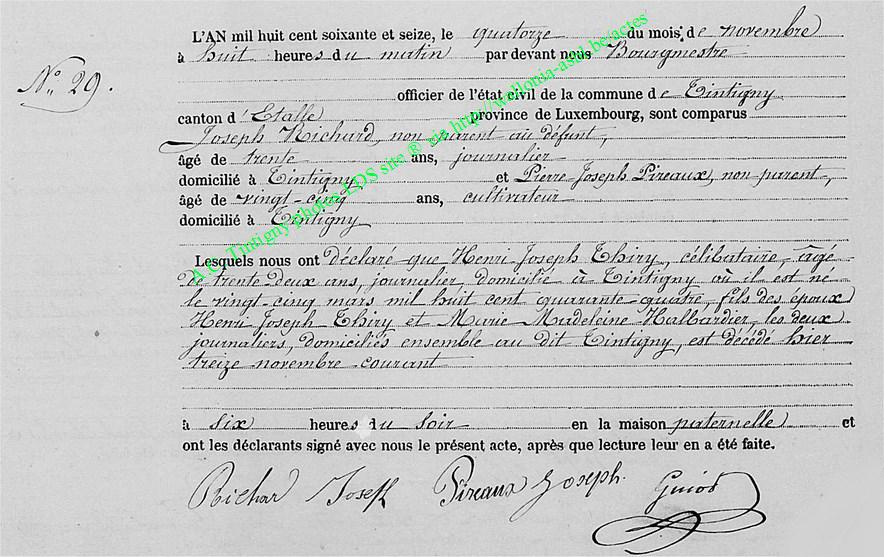 L'AN mil huit cent soixante et seize, le quatorze du mois de novembre
à huit heures du matin par devant nous Bourgmestre
N° 29.
officier de l'état civil de la commune de Tintigny
canton d'Etalle province de Luxembourg, sont comparus
Joseph Richard, non parent au défunt,
âgé de trente ans, journalier
domicilié à Tintigny et Pierre Joseph Pireaux, non parent,
âgé de vingt-cinq ans, cultivateur
domicilié à Tintigny
Lesquels nous ont déclaré que Henri Joseph Thiry, célibataire, âgé
de trente deux ans, journalier, domicilié à Tintigny où il est né
le vingt-cinq mars mil huit cent quarante-quatre, fils des époux
Henri Joseph Thiry et Marie Madeleine Halbardier, les deux
journaliers, domiciliés ensemble au dit Tintigny, est décédé hier
treize novembre courant
à six heures du soir en la maison paternelle et
ont les déclarants signé avec nous le présent acte, après que lecture leur en a été faite.
Richar Joseff Pireaux Joseph. Guiot
A.C. Tintigny photos LDS site ® via http://wallonia-asbl.be/actes